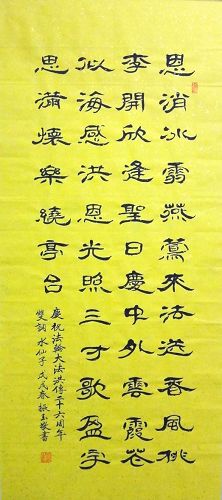 恩消冰雪燕鶯來法送香風桃
李開欣逢聖日慶中外雲霞花
似海感洪恩光照三才歌盈宇
思滿懷樂繞亭台
慶祝法輪大法洪傳二十六周年
雙調 水仙子 戊戌春 振玉敬書